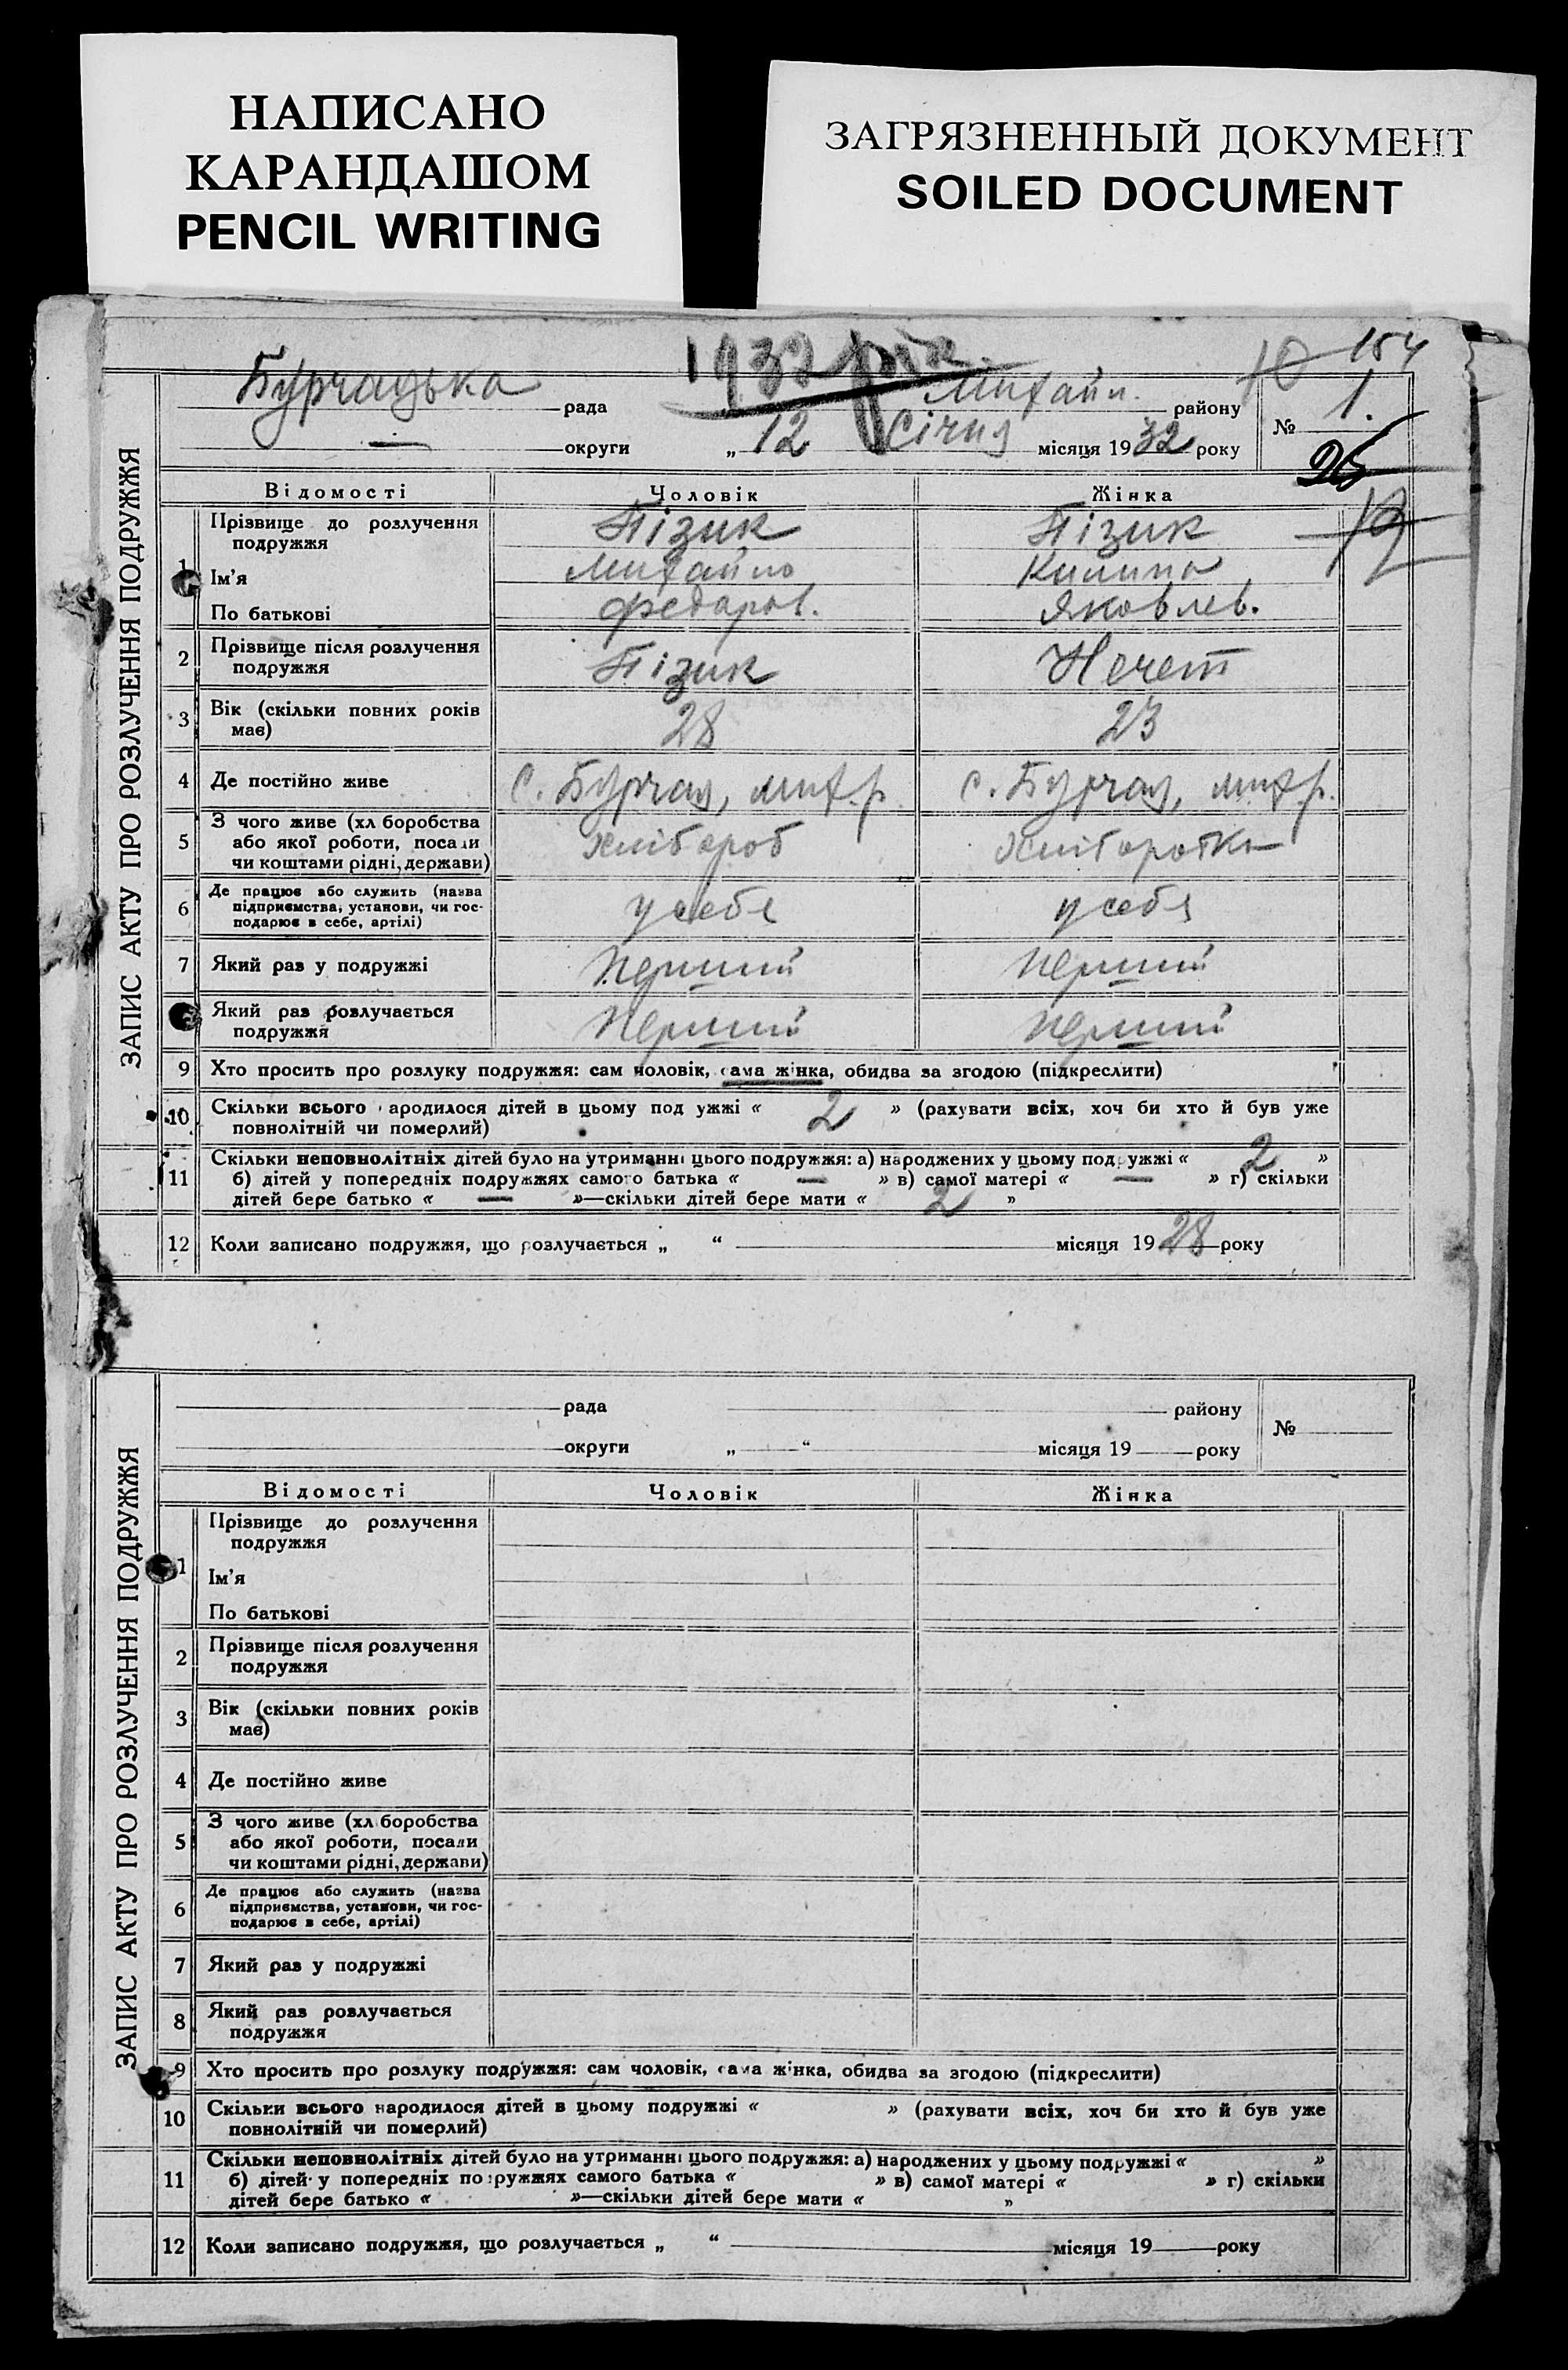 НАПИСАНО
КАРАНДАШОМ
PENCIL WRITING
ЗАГРЯЗНЕННЫЙ ДОКУМЕНТ
SOILED DOCUMENT
1932 рік
10 154
ЗАПИС АКТУ ПРО РОЗЛУЧЕННЯ ПОДРУЖЖЯ
Бурчацька рада Михайл. району № 1.
— округи „ 12 Січня місяця 1932 року
25
Відомості Чоловік Жінка
1 Прізвище до розлучення подружжя Пізик Пізик
Ім'я Михайло Килина
По батькові Федаров. Яковлев.
2 Прізвище після розлучення подружжя Пізик Нечет
3 Вік (скільки повних років має) 28 23
4 Де постійно живе с. Бурчак, мих.р. с. Бурчак, мих.р.
5 З чого живе (хл боробства або якої роботи, посади чи коштами рідні, держави) хлібороб хлібороbка
6 Де працює або служить (назва підприємства, установи, чи господарює в себе, артілі) у себе у себе
7 Який раз у подружжі Перший Перший
Який раз розлучається подружжя Перший Перший
9 Хто просить про розлуку подружжя: сам чоловік, сама жінка, обидва за згодою (підкреслити)
10 Скільки всього ародилося дітей в цьому под ужжі « 2 » (рахувати всіх, хоч би хто й був уже
повнолітній чи померлий)
11 Скільки неповнолітніх дітей було на утриманні цього подружжя: а) народжених у цьому подружжі « 2 »
б) дітей у попередніх подружжях самого батька « — » в) самої матері « — » г) скільки
дітей бере батько « — »—скільки дітей бере мати « 2 »
12 Коли записано подружжя, що розлучається „ “ місяця 1928 року
ЗАПИС АКТУ ПРО РОЗЛУЧЕННЯ ПОДРУЖЖЯ
рада району №
округи „ “ місяця 19 року
Відомості Чоловік Жінка
1 Прізвище до розлучення
подружжя
Ім'я
По батькові
2 Прізвище після розлучення
подружжя
3 Вік (скільки повних років
має)
4 Де постійно живе
5 З чого живе (хл боробства
або якої роботи, посади
чи коштами рідні, держави)
6 Де працює або служить (назва
підприємства, установи, чи гос-
подарює в себе, артілі)
7 Який раз у подружжі
8 Який раз розлучається
подружжя
9 Хто просить про розлуку подружжя: сам чоловік, сама жінка, обидва за згодою (підкреслити)
10 Скільки всього народилося дітей в цьому подружжі « » (рахувати всіх, хоч би хто й був уже
повнолітній чи померлий)
11 Скільки неповнолітніх дітей було на утриманні цього подружжя: а) народжених у цьому подружжі « »
б) дітей у попередніх подружжях самого батька « » в) самої матері « » г) скільки
дітей бере батько « »—скільки дітей бере мати « »
12 Коли записано подружжя, що розлучається „ “ місяця 19 року